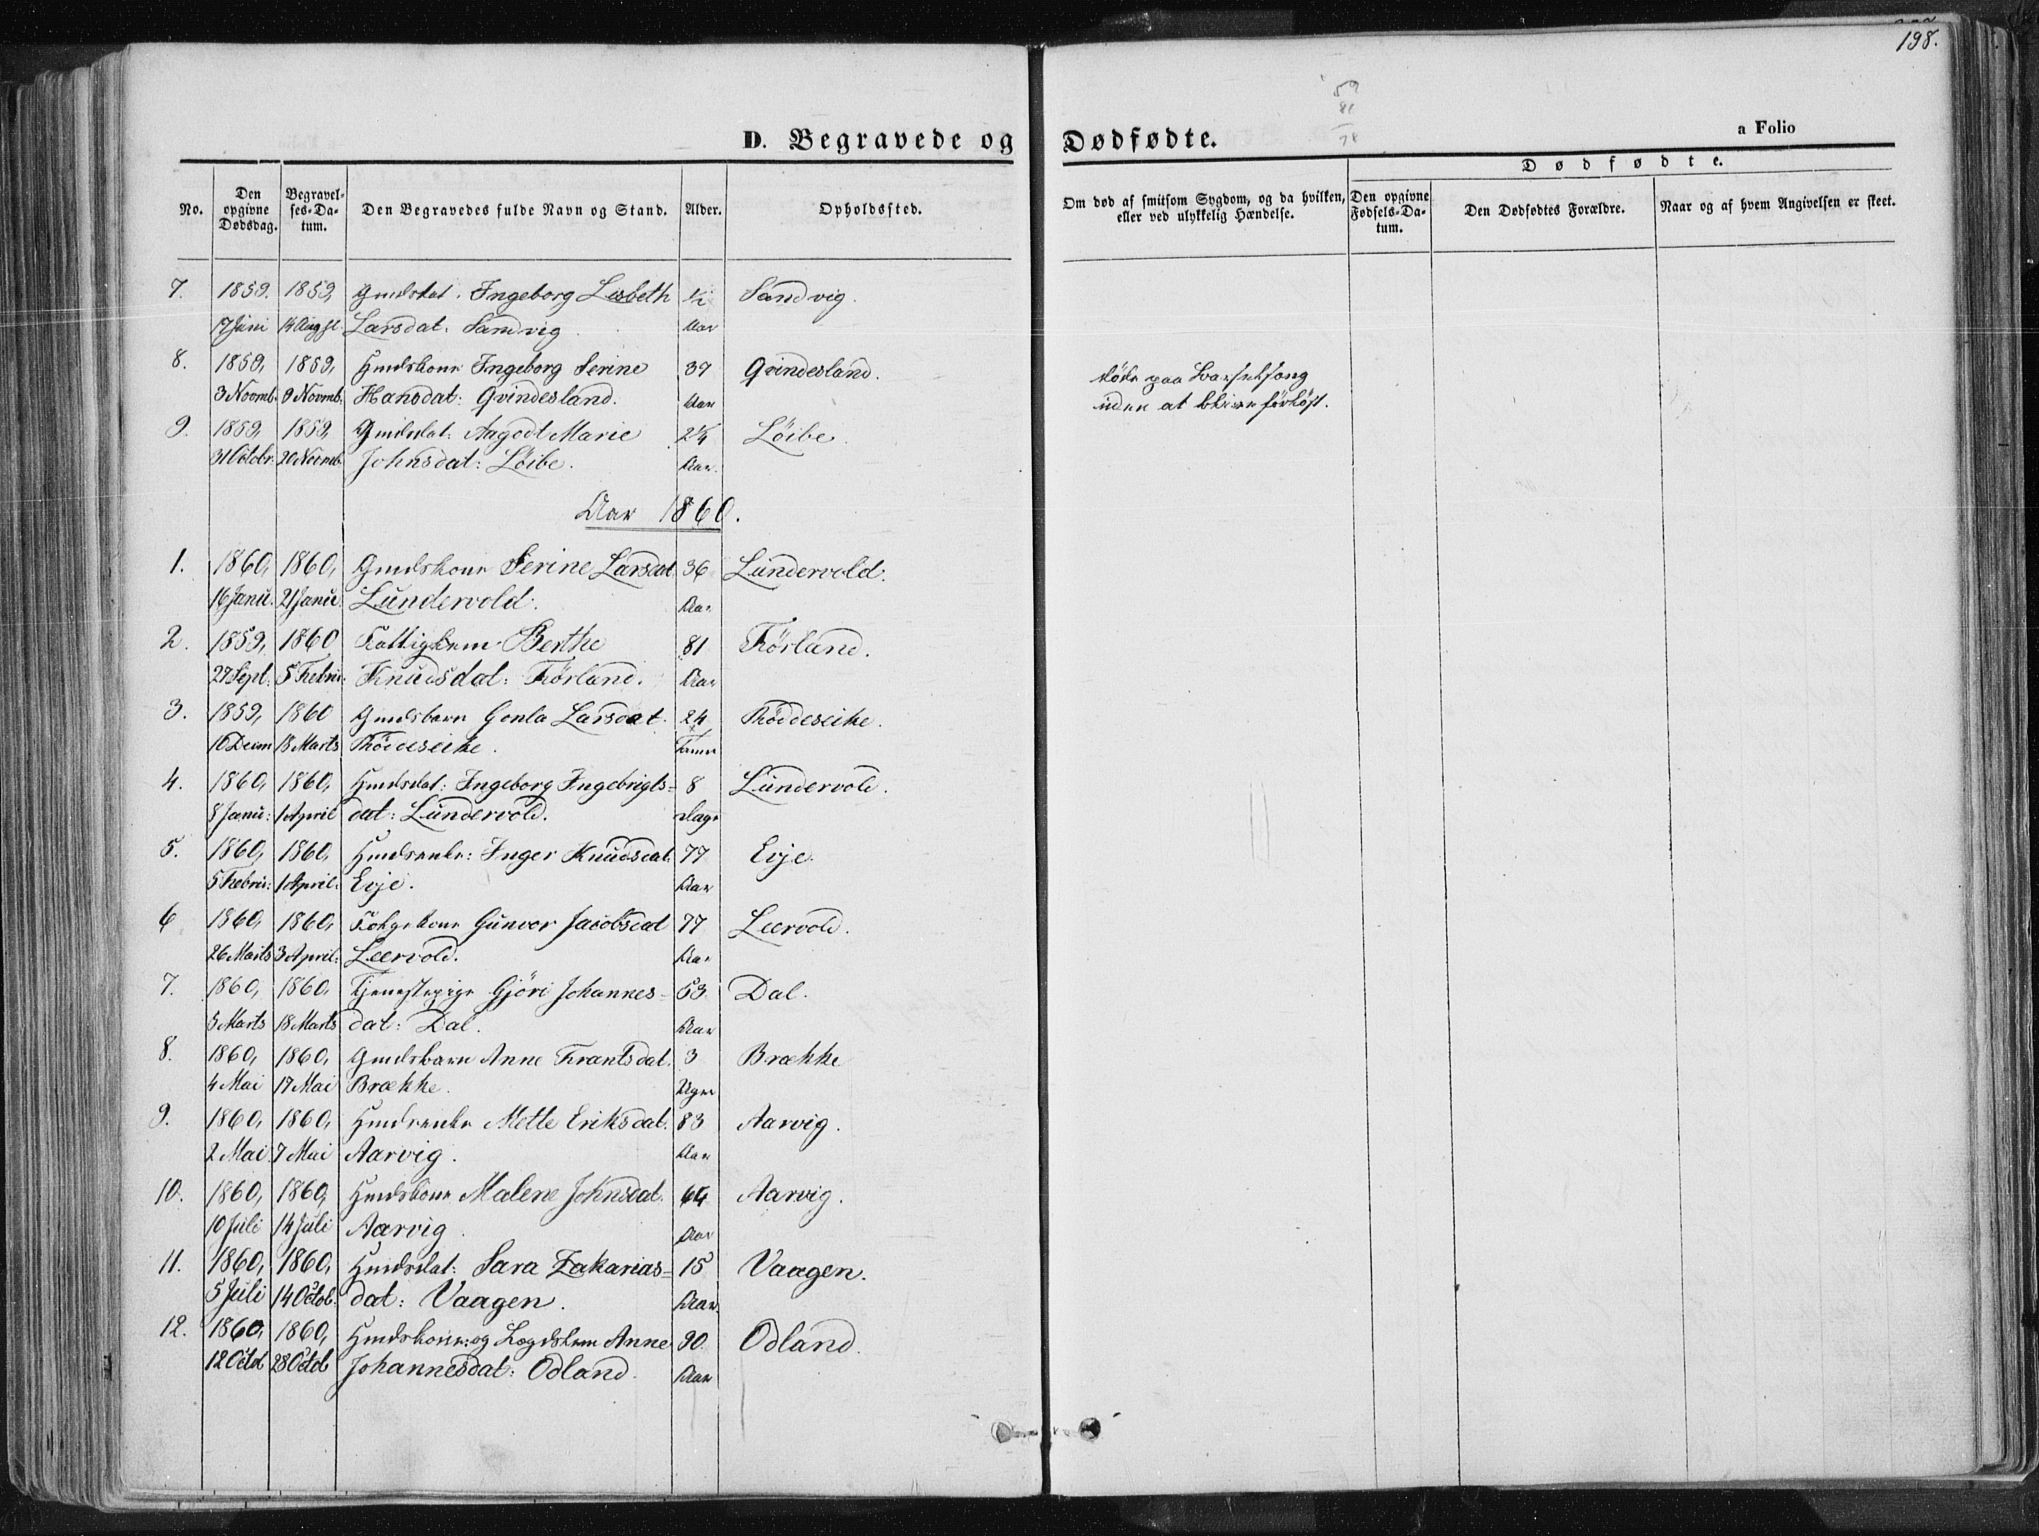 198.
59
81
78
D. Begravede og Dødfødte.
a Folio
No.
Den opgivne Dødsdag.
Begravelses-Datum.
Den Begravedes fulde Navn og Stand.
Alder.
Opholdssted.
Om død af smitsom Sygdom, og da hvilken, eller ved ulykkelig Hændelse.
Dødfødte.
Den opgivne Fødsels-Datum.
Den Dødfødtes Forældre.
Naar og af hvem Angivelsen er skeet.
7. 1859. 1859, Gmdsdat. Ingeborg Lisbeth ½ Sandvig.
17 Juni 14 Augst. Larsdat: Sandvig Aar
8. 1859, 1859, Hmdskone Ingeborg Serine 37 Qvindesland. døde paa Barselseng
3 Novmb. 9 Novmb. Hansdat: Qvindesland. Aar uden at blive forløst.
9. 1859, 1859, Gmdsdat: Aagodt Marie 2¼ Löibe.
31 Octobr. 20 Novmb. Johnsdat: Löibe. Aar.
Aar 1860.
1. 1860, 1860, Gmdskone Serine Larsdat. 36 Lundervold.
16 Janu. 21 Janu. Lundervold. Aar
2. 1859, 1860 Fattiglem Berthe 81 Förland.
27 Sept. 5 Febru: Knudsdat: Förland. Aar
3. 1859, 1860 Gmdsbarn Larsdat. 24 Röddeseike.
10 Decm 18 Marts Röddeseike. Timer
4. 1860, 1860, Hmdsdat: Ingeborg Ingebrigts= 8 Lundervold.
8 Janu: 1 April dat: Lundervold. Dage
5. 1860, 1860, Hmdsenke: Inger Knudsdat. 77 Evje.
5 Febru: 1 April. Evje. Aar
6 1860, 1860, Folgekone Gunvor Jacobsdat 77 Leervold.
26 Marts 3 April: Leervold. Aar
7. 1860, 1860, Tjenestepige Gjöri Johannes= 53 Dal.
3 Marts 18 Marts dat: Dal. Aar
8. 1860, 1860, Gmdsbarn Anne Frantsdat. 3 Brække
4 Mai 17 Mai Brække. Uger
9. 1860, 1860, Hmdsenke Mette Eriksdat. 83 Aarvig.
2 Mai. 7 Mai Aarvig. Aar
10. 1860, 1860, Hmdskone Malene Johnsdat. 64 Aarvig.
10 Juli 14 Juli Aarvig. Aar
11. 1860, 1860, Hmdsdat: Sara Zakarias= 15 Vaagen.
5 Juli 14 Octob. dat: Vaagen. Aar.
12. 1860, 1860, Hmdskone: og Lægdslem Anne 90 Odland.
12 Octob 28 Octob Johannesdat: Odland. Aar